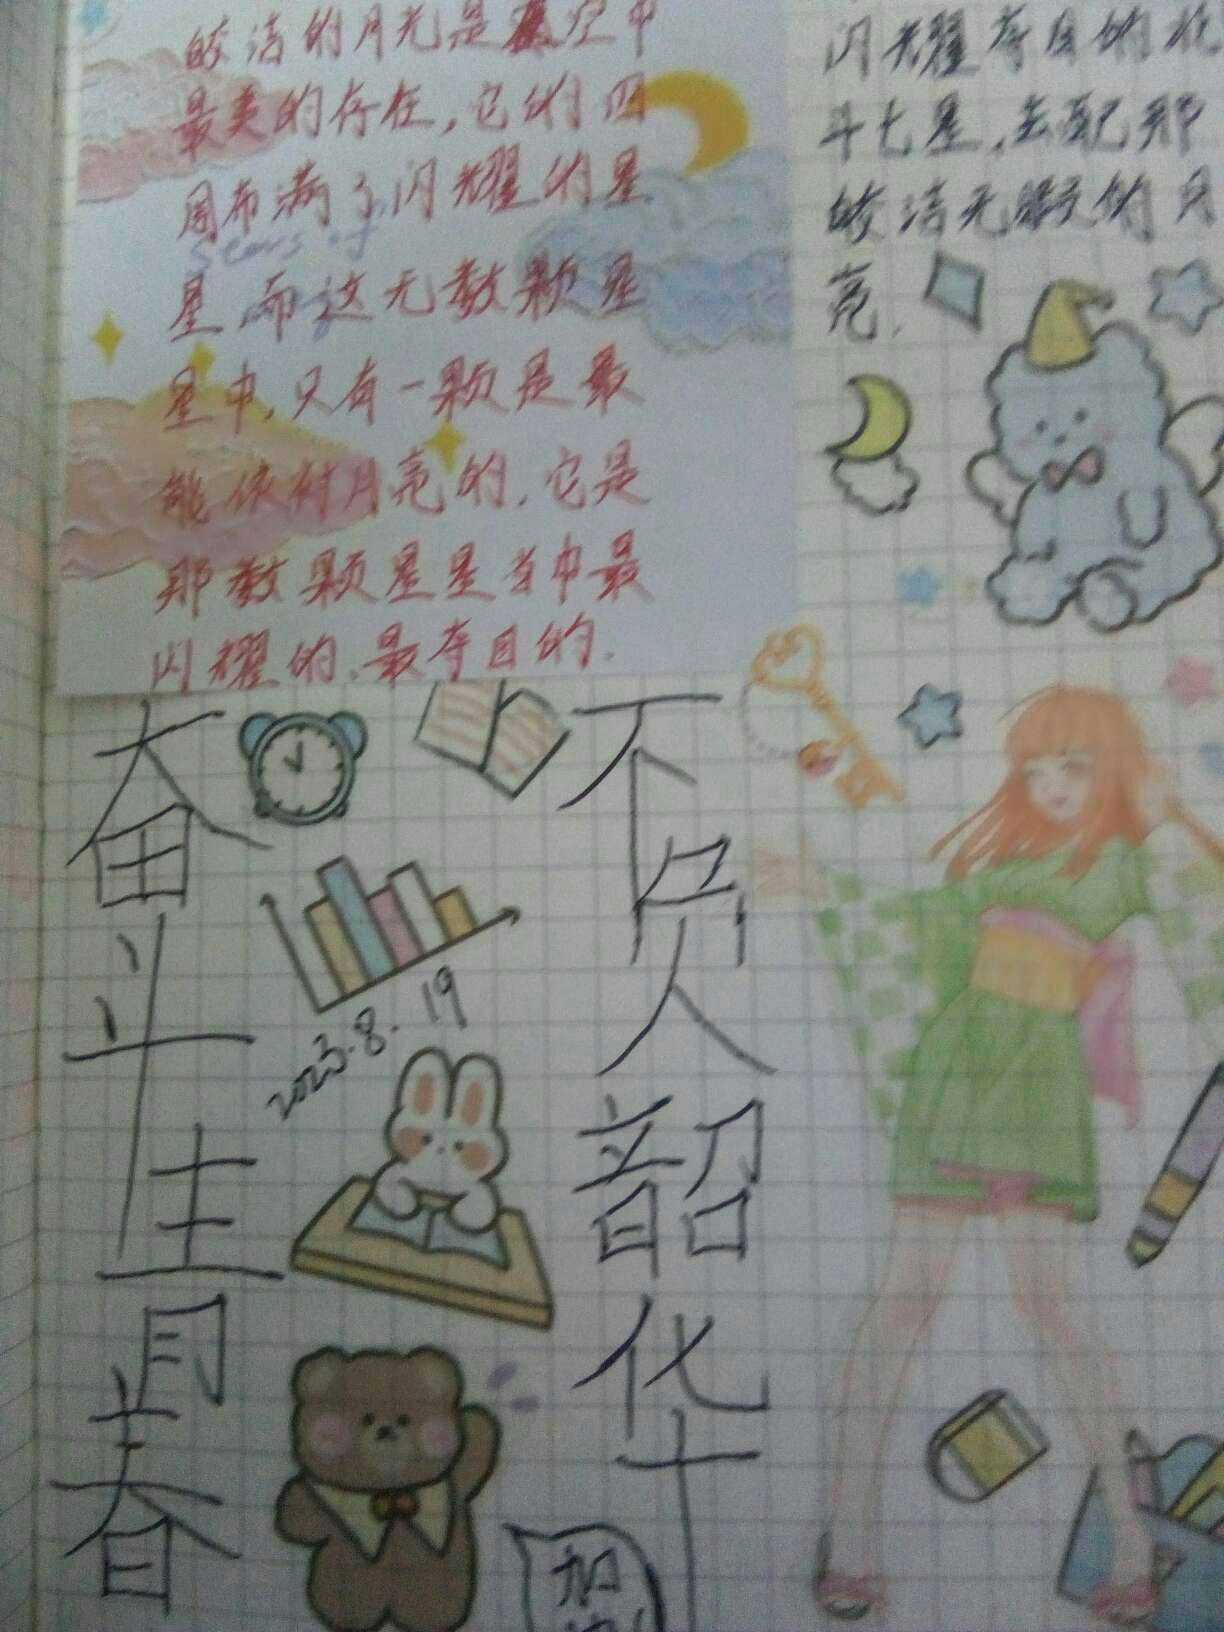 皎洁的月光是空中
最美的存在,它的四
周布满了闪耀的星
星,而这无数颗星
星中,只有一颗是最
能依衬月亮的,它是
那数颗星星当中最
闪耀的、最夺目的.
闪耀夺目的北
斗七星,去配那
皎洁无瑕的月
亮.
奋斗青春
不负韶华
2023.8.19
加